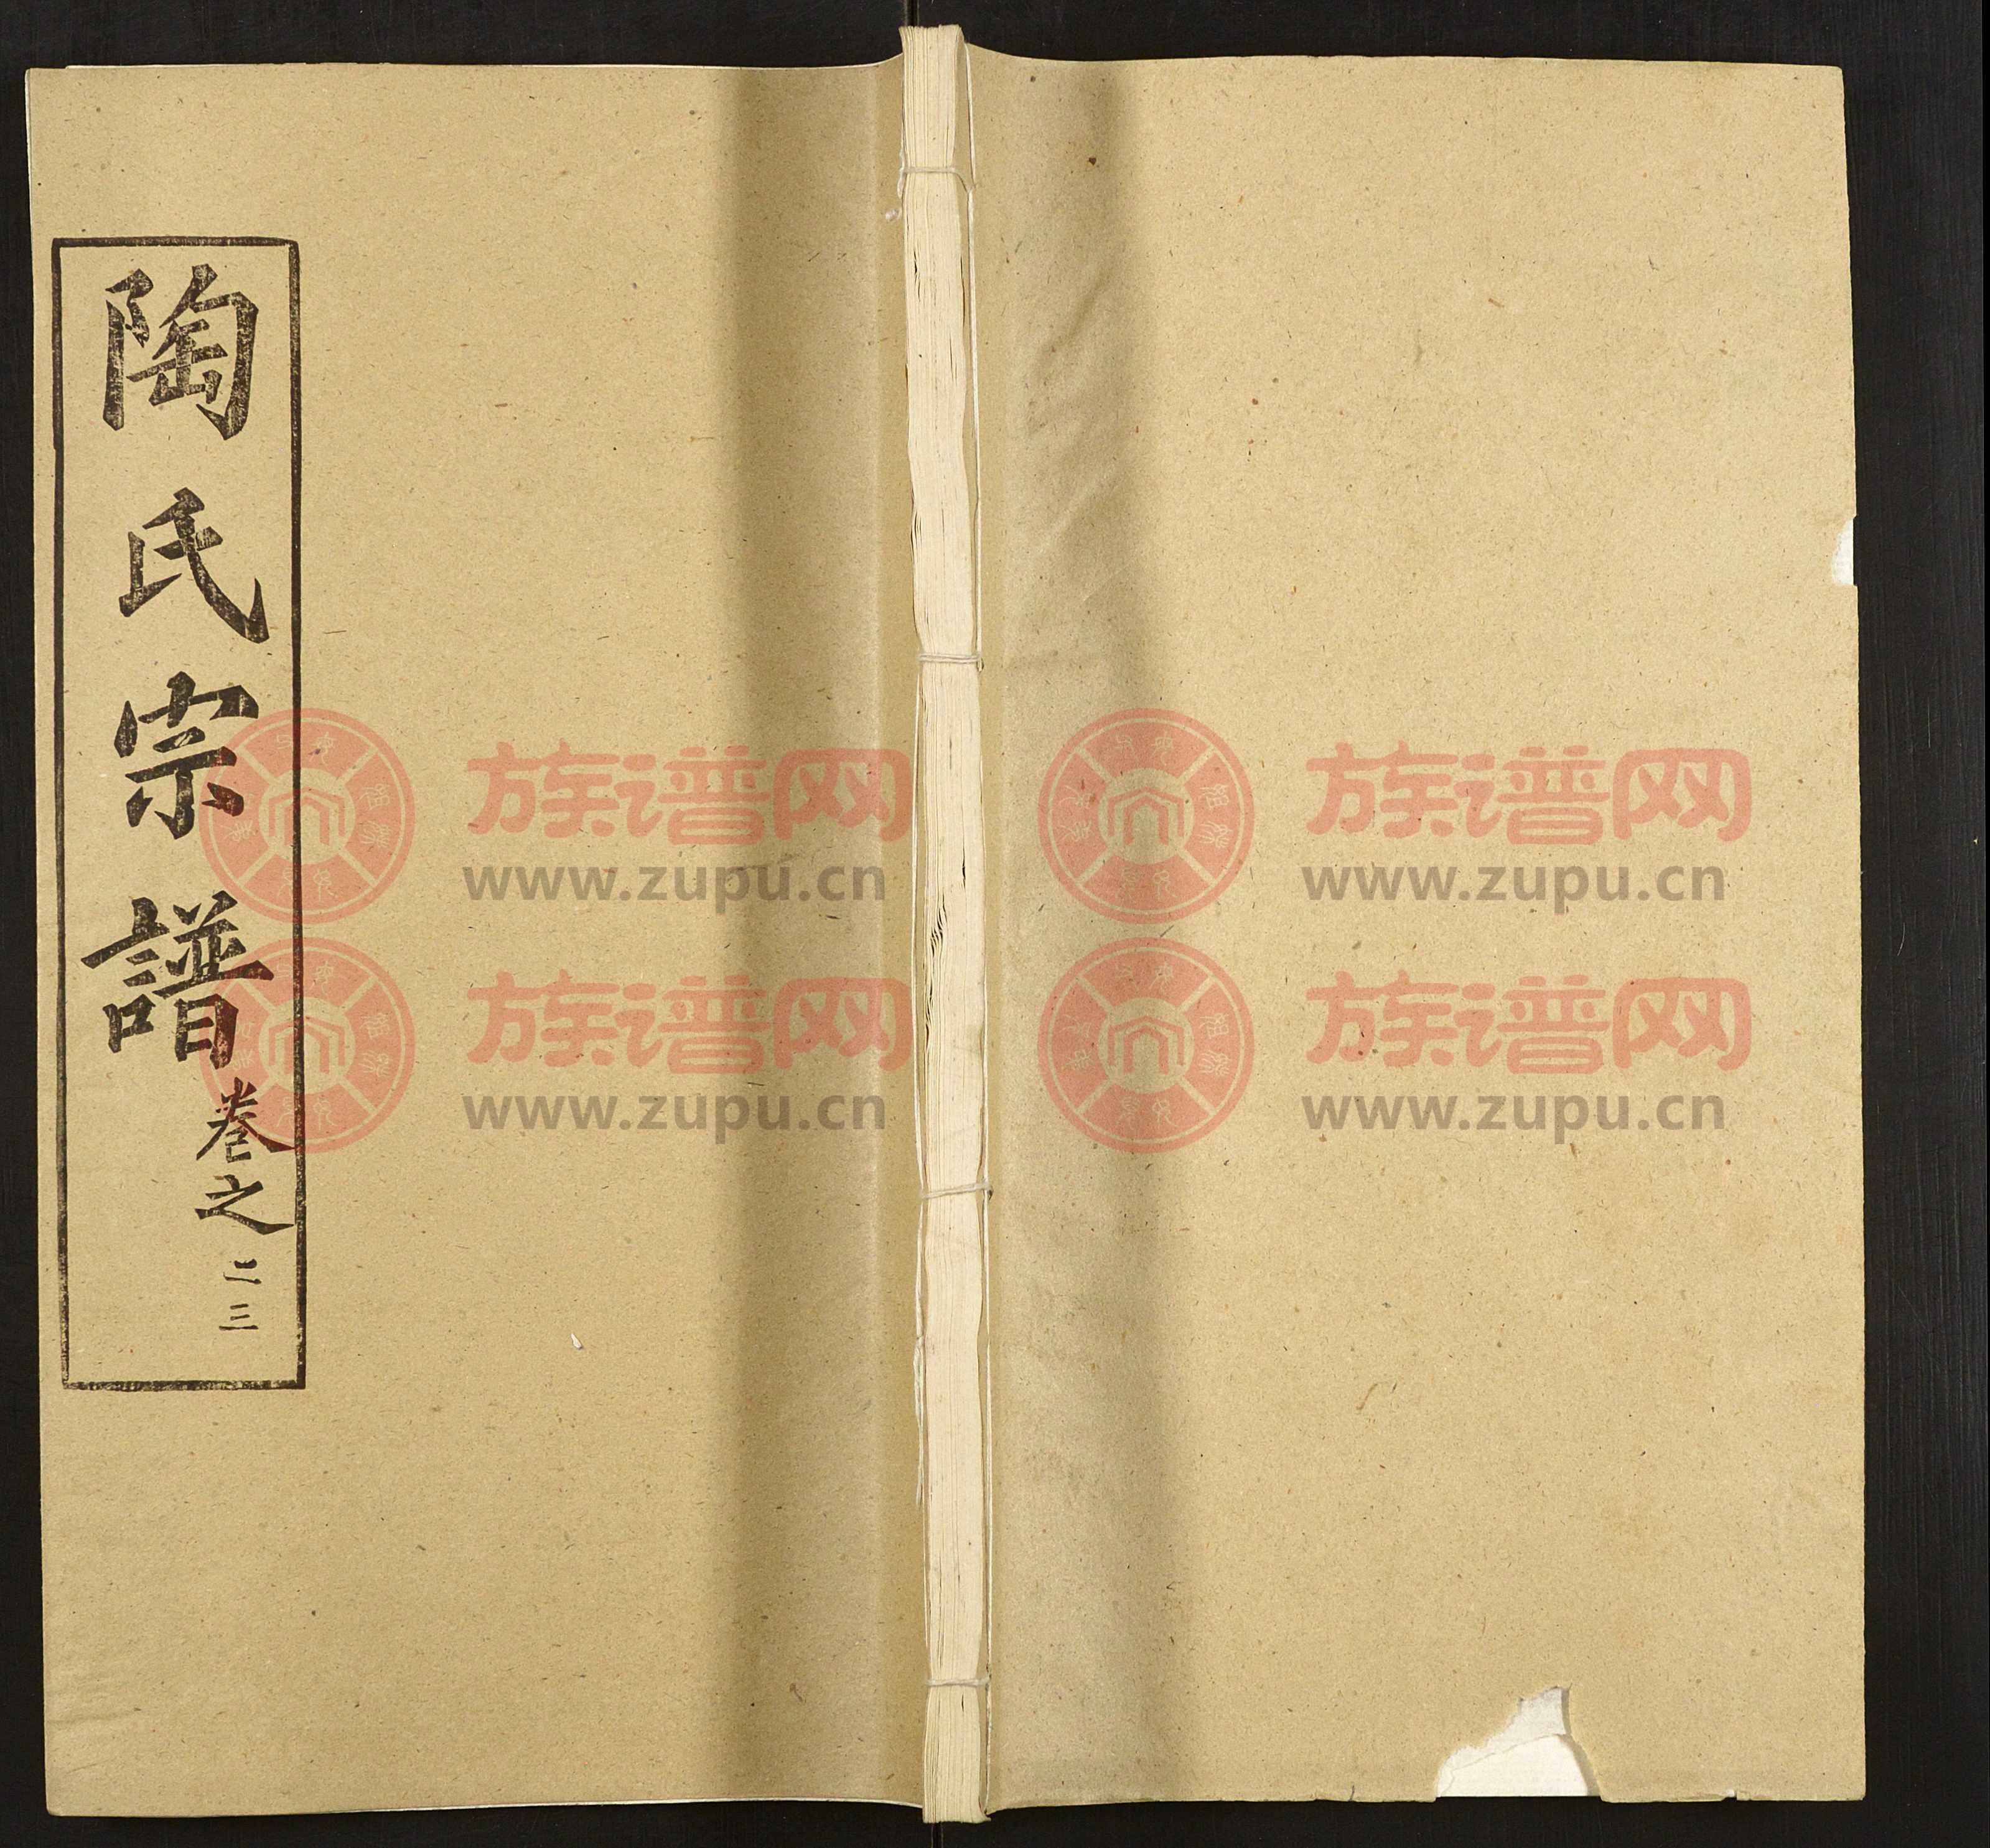 陶氏宗譜
卷之二三
族谱网 族谱网
www.zupu.cn www.zupu.cn
族谱网 族谱网
www.zupu.cn www.zupu.cn